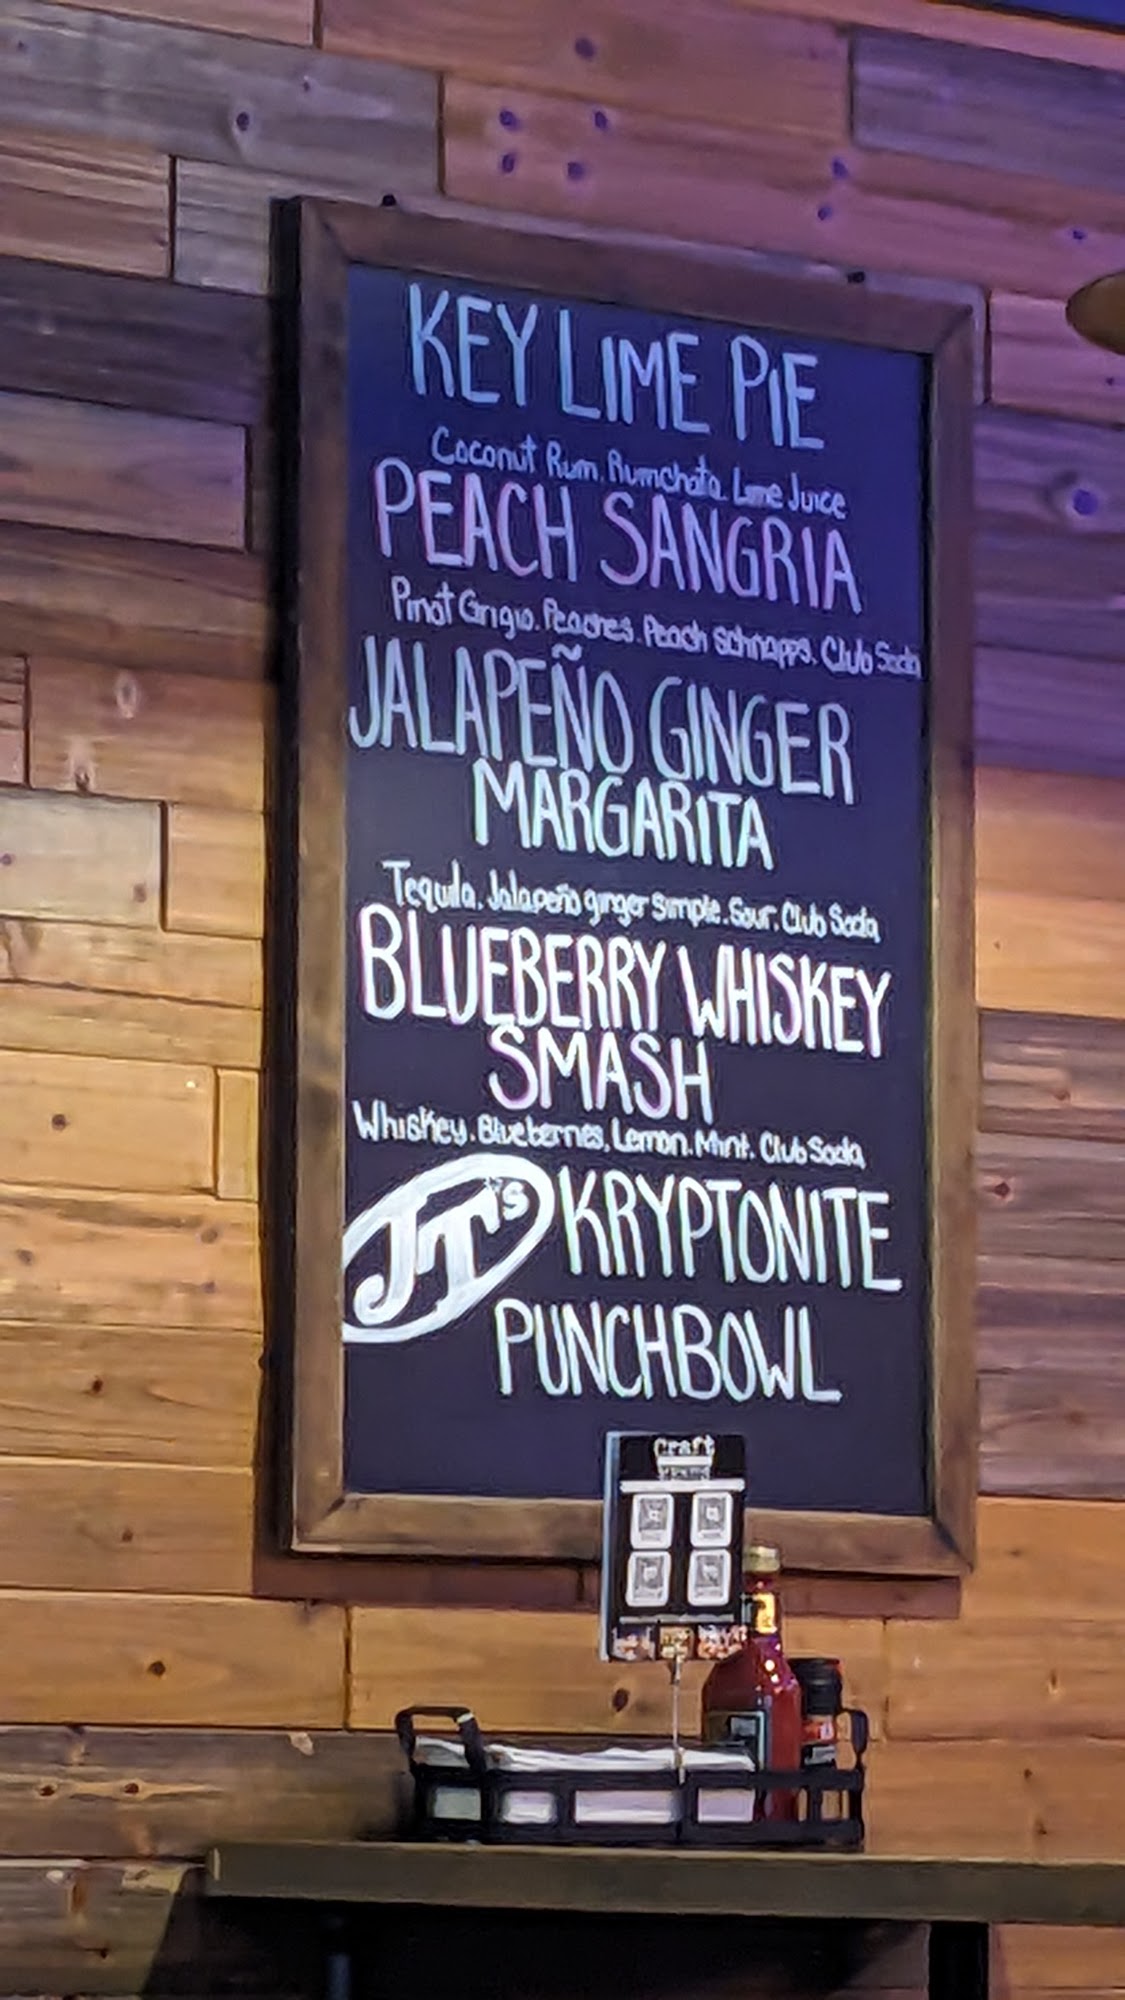 KEY LIME PIE
Coconut Rum. Rumchata. Lime Juice
PEACH SANGRIA
Pinot Grigio. Peaches. Peach Schnapps. Club Soda
JALAPEÑO GINGER
MARGARITA
Tequila. Jalapeño ginger simple. Sour. Club Soda
BLUEBERRY WHISKEY
SMASH
Whiskey. Blueberries, Lemon. Mint. Club Soda
JT's KRYPTONITE
PUNCHBOWL
Craft